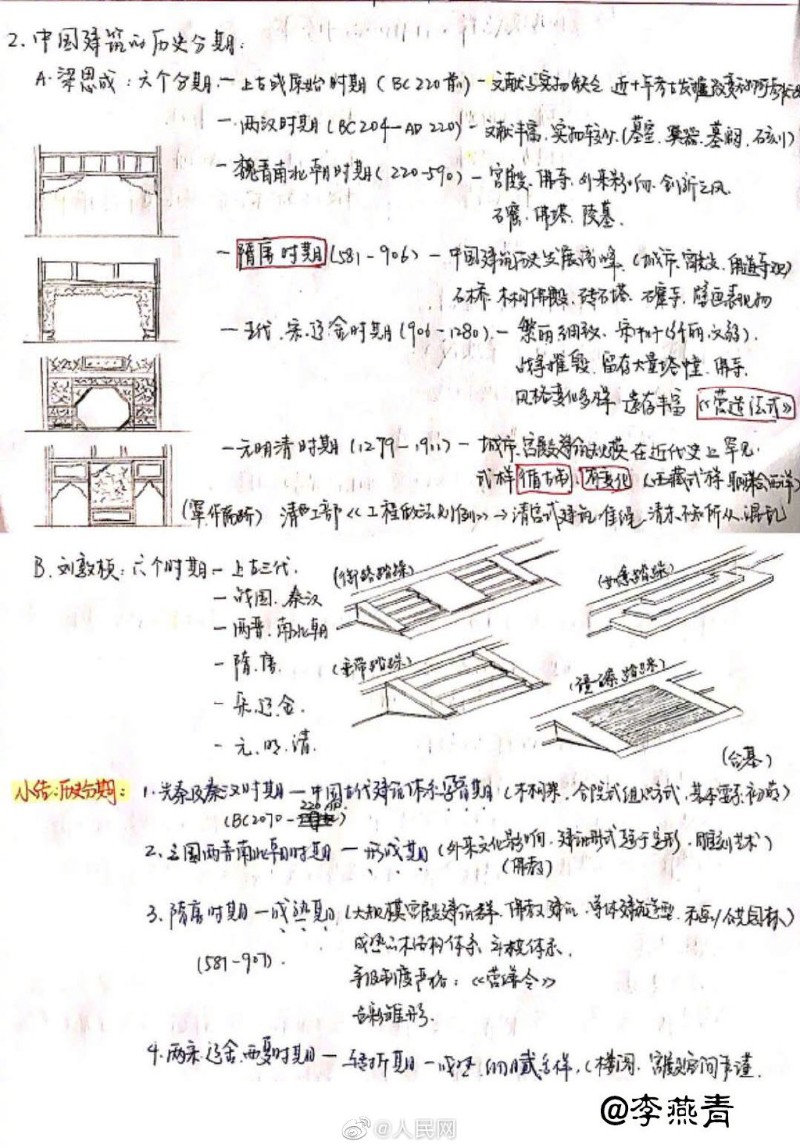 2.中国建筑的历史分期:
A.梁思成:六个分期.一上古或原始时期(BC220前)-文献与实物缺乏 近十年考古发掘
一两汉时期(BC204-AD220)-文献丰富.实物较少.(墓室.冥器.墓阙.石刻)
-魏晋南北朝时期(220-590)-宫殿.佛寺.外来影响.创新之风.
石窟.佛塔.陵墓.
-隋唐时期(581-906)-中国建筑历史发展高峰.(城市.宫殿.
石桥.木构佛殿.砖石塔.石窟寺.壁画表现物
-五代.宋.辽金时期(906-1280).-繁丽细致.
战争摧毁.留存大量塔幢.佛寺.
风格变化多样 遗存丰富《营造法式》
-元明清时期(1279-1911)-城市.宫殿建筑规模在近代史上罕见.
式样
清 工部《工程做法则例》→清官式建筑准绳.
B.刘敦桢:六个时期-上古三代.
-战国.秦汉
-两晋.南北朝
-隋.唐
-宋辽金.
-元.明.清.
(御路踏跺)
(如意踏跺)
(垂带踏跺)
(礓磋踏跺)
(台基)
小结:历史分期:
1.先秦及秦汉时期-中国古代建筑体系孕育期(木构架.合院式组织方式.基本要素初露)
(BC2070-220年)
2.三国两晋南北朝时期-形成期(外来文化影响.建筑形式趋于定形.雕刻艺术)
(佛教)
3.隋唐时期-成熟期(大规模宫殿建筑群.佛教建筑.单体建筑造型.
(581-907).
成熟的木结构体系.斗栱体系.
等级制度严格:《营缮令》
色彩雏形.
4.两宋.辽金.西夏时期-转折期-
@人民网
@李燕青